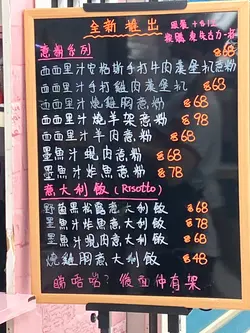 全新推出
意粉系列
西西里汁安格斯手打牛肉漢堡扒意粉
西西里汁手打雞肉漢堡扒 68
西西里汁燒雞閪意粉 68
西西里汁燒羊架意粉 98
西西里汁羊肉意粉 68
墨魚汁蜆肉意粉 68
墨魚汁炸魚意粉 78
意大利飯(Risotto)
野菌黑松露意大利飯 68
墨魚汁炸魚意大利飯 78
墨魚汁蜆肉意大利飯 68
燒雞閪意大利飯 48
睇啱啱? 後面仲有架